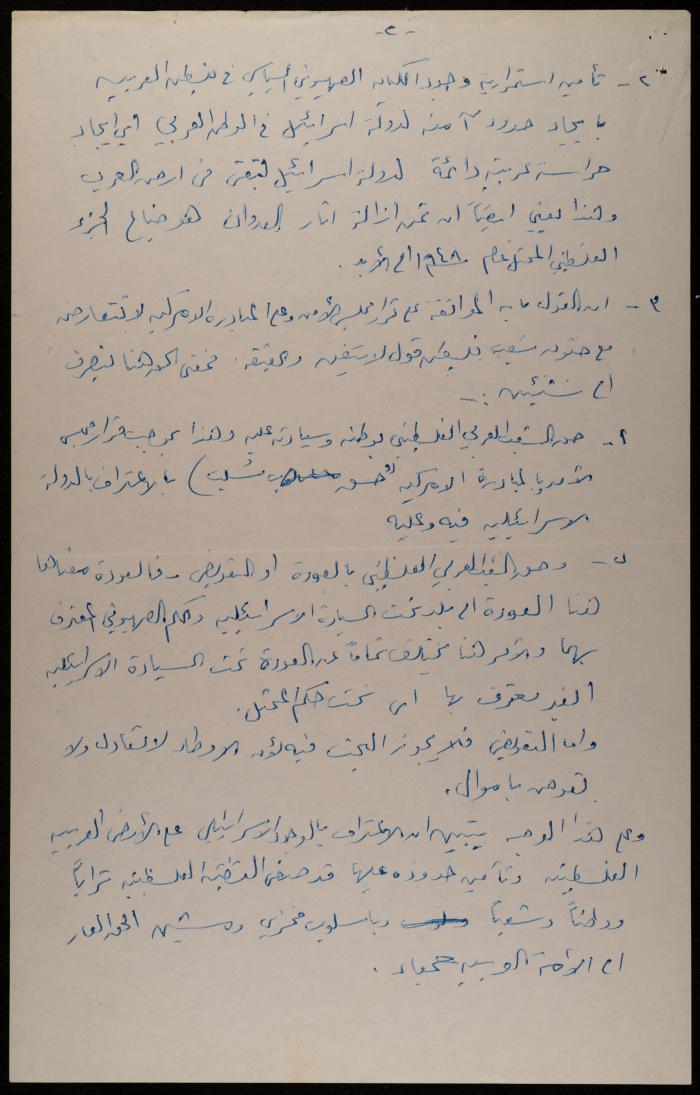 -٢-
٢- تأمين استمرارية وجود الكيان الصهيوني السياسي في فلسطين العربية
بايجاد حدود آمنة لدولة اسرائيل في الوطن العربي اي ايجاد
حراسة عربية دائمة لدولة اسرائيل لتبقى في ارض العرب
وهذا يعني ايضاً ان ثمن ازالة اثار العدوان هو ضياع الجزء
الفلسطيني المحتل عام ١٩٤٨ الى الأبد .
٣- ان القول بأن الموافقة على قرار مجلس الأمن وعلى المبادرة الامركية لا تتعارض
مع حقوق شعب فلسطين قول لا يتفق والحقيقة . فمعنى الحق هنا ينصرف
الى شيئين :-
أ- حق الشعب العربي الفلسطيني بوطنه وسيادته عليه وهذا بموجب قرار مجلس
الأمن والمبادرة الامركية بالاعتراف بالدولة
الاسرائيلية فيه وعليه
ب- وحق الشعب العربي الفلسطيني بالعودة او التعويض - فالعودة معناها
هنا العودة الى بلد تحت السيادة الاسرائيلية والحكم الصهيوني المعترف
بهما والأمر هنا يختلف تماماً عن العودة تحت السيادة الاسرائيلية
الغير معترف بها اي تحت حكم المحتل .
واما التعويض فلا يجوز البحث فيه لأن الاوطان لا تتعادل ولا
تعوض باموال .
وعلى هذا الوجه يتبين ان الاعتراف بالوجود الاسرائيلي على الأرض العربية
الفلسطينية وتأمين حدوده عليها قد صفى القضية الفلسطينية تراباً
ووطناً وشعباً وباسلوب مخزي ومشين الحق العار
الى الأمة العربية جمعاء .